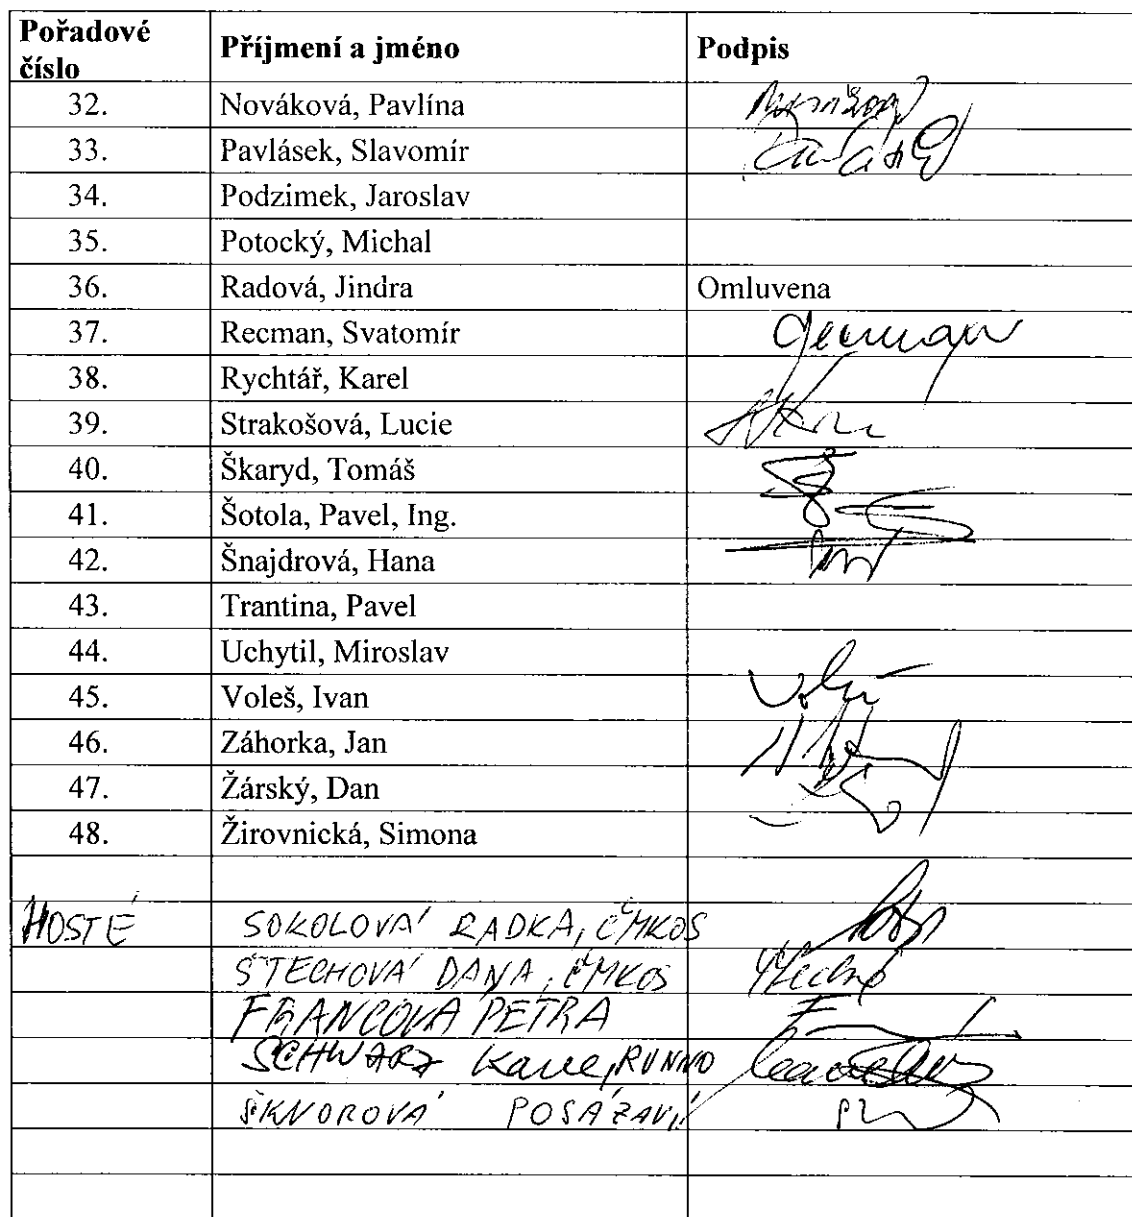 Pořadové číslo Příjmení a jméno Podpis
32. Nováková, Pavlína
33. Pavlásek, Slavomír
34. Podzimek, Jaroslav
35. Potocký, Michal
36. Radová, Jindra Omluvena
37. Recman, Svatomír
38. Rychtář, Karel
39. Strakošová, Lucie
40. Škaryd, Tomáš
41. Šotola, Pavel, Ing.
42. Šnajdrová, Hana
43. Trantina, Pavel
44. Uchytil, Miroslav
45. Voleš, Ivan
46. Záhorka, Jan
47. Žárský, Dan
48. Žirovnická, Simona
HOSTÉ SOKOLOVÁ RADKA, ČMKOS
ŠTECHOVÁ DANA, ČMKOS
FRANCOVÁ PETRA
SCHWARZ
ŠKNOROVÁ POSÁZAVÍ